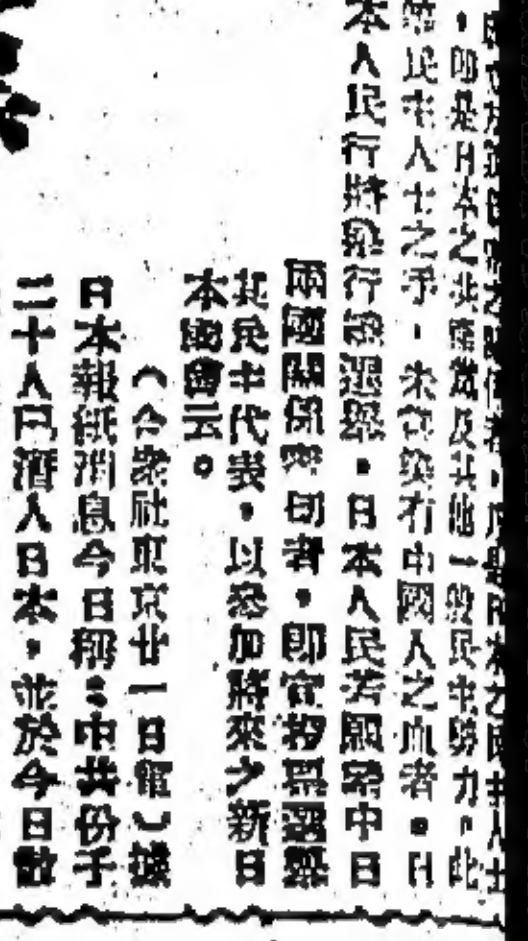 日本之民主人士
，即是日本之共產黨及其他一般民主勢力，此
民主人士之手，未曾染有中國人之血者。日
本人民行將舉行總選舉。日本人民若顧念中日
兩國關係密切者，即宜投票選舉
其民主代表，以參加將來之新日
本國會云。
（合衆社東京廿一日電）據
日本報紙消息今日稱：中共份子
二十人已潛入日本，並於今日散